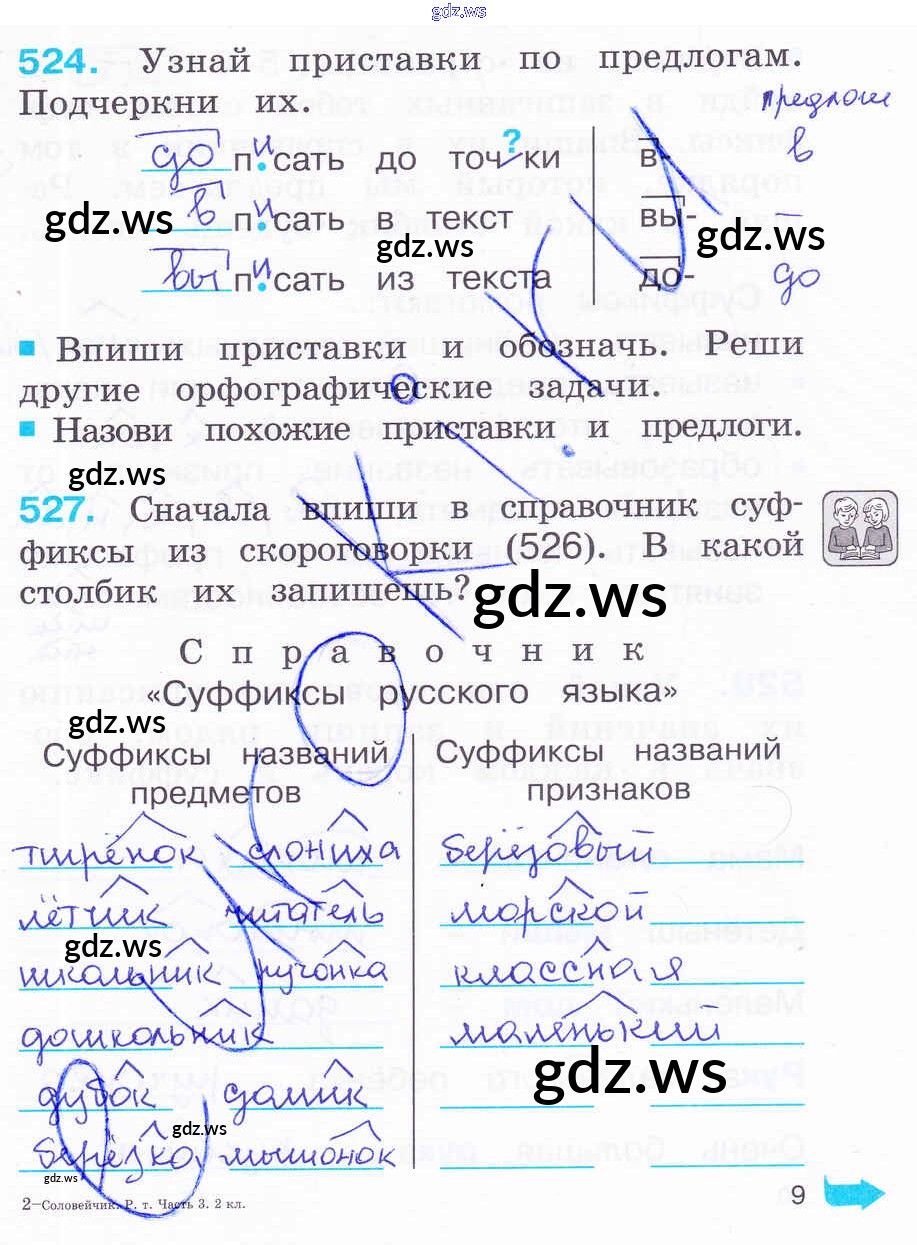 gdz.ws
524. Узнай приставки по предлогам.
Подчеркни их.
предлоги
до писать до точ?ки в- в
в писать в текст вы-
gdz.ws gdz.ws gdz.ws
вы писать из текста до- до
Впиши приставки и обозначь. Реши
другие орфографические задачи.
Назови похожие приставки и предлоги.
gdz.ws
527. Сначала впиши в справочник суф-
фиксы из скороговорки (526). В какой
столбик их запишешь?
gdz.ws
Справочник
«Суффиксы русского языка»
gdz.ws
Суффиксы названий предметов
Суффиксы названий признаков
тигрёнок слониха берёзовый
лётчик читатель морской
gdz.ws
школьник ручонка классная
дошкольник маленький
gdz.ws
дубок домик
gdz.ws
берёзка мышонок
gdz.ws
2–Соловейчик. Р. т. Часть 3. 2 кл.
9